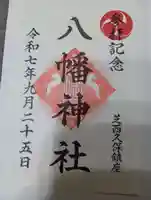 参拝記念
芝西久保鎮座
八幡神社
令和七年九月二十五日